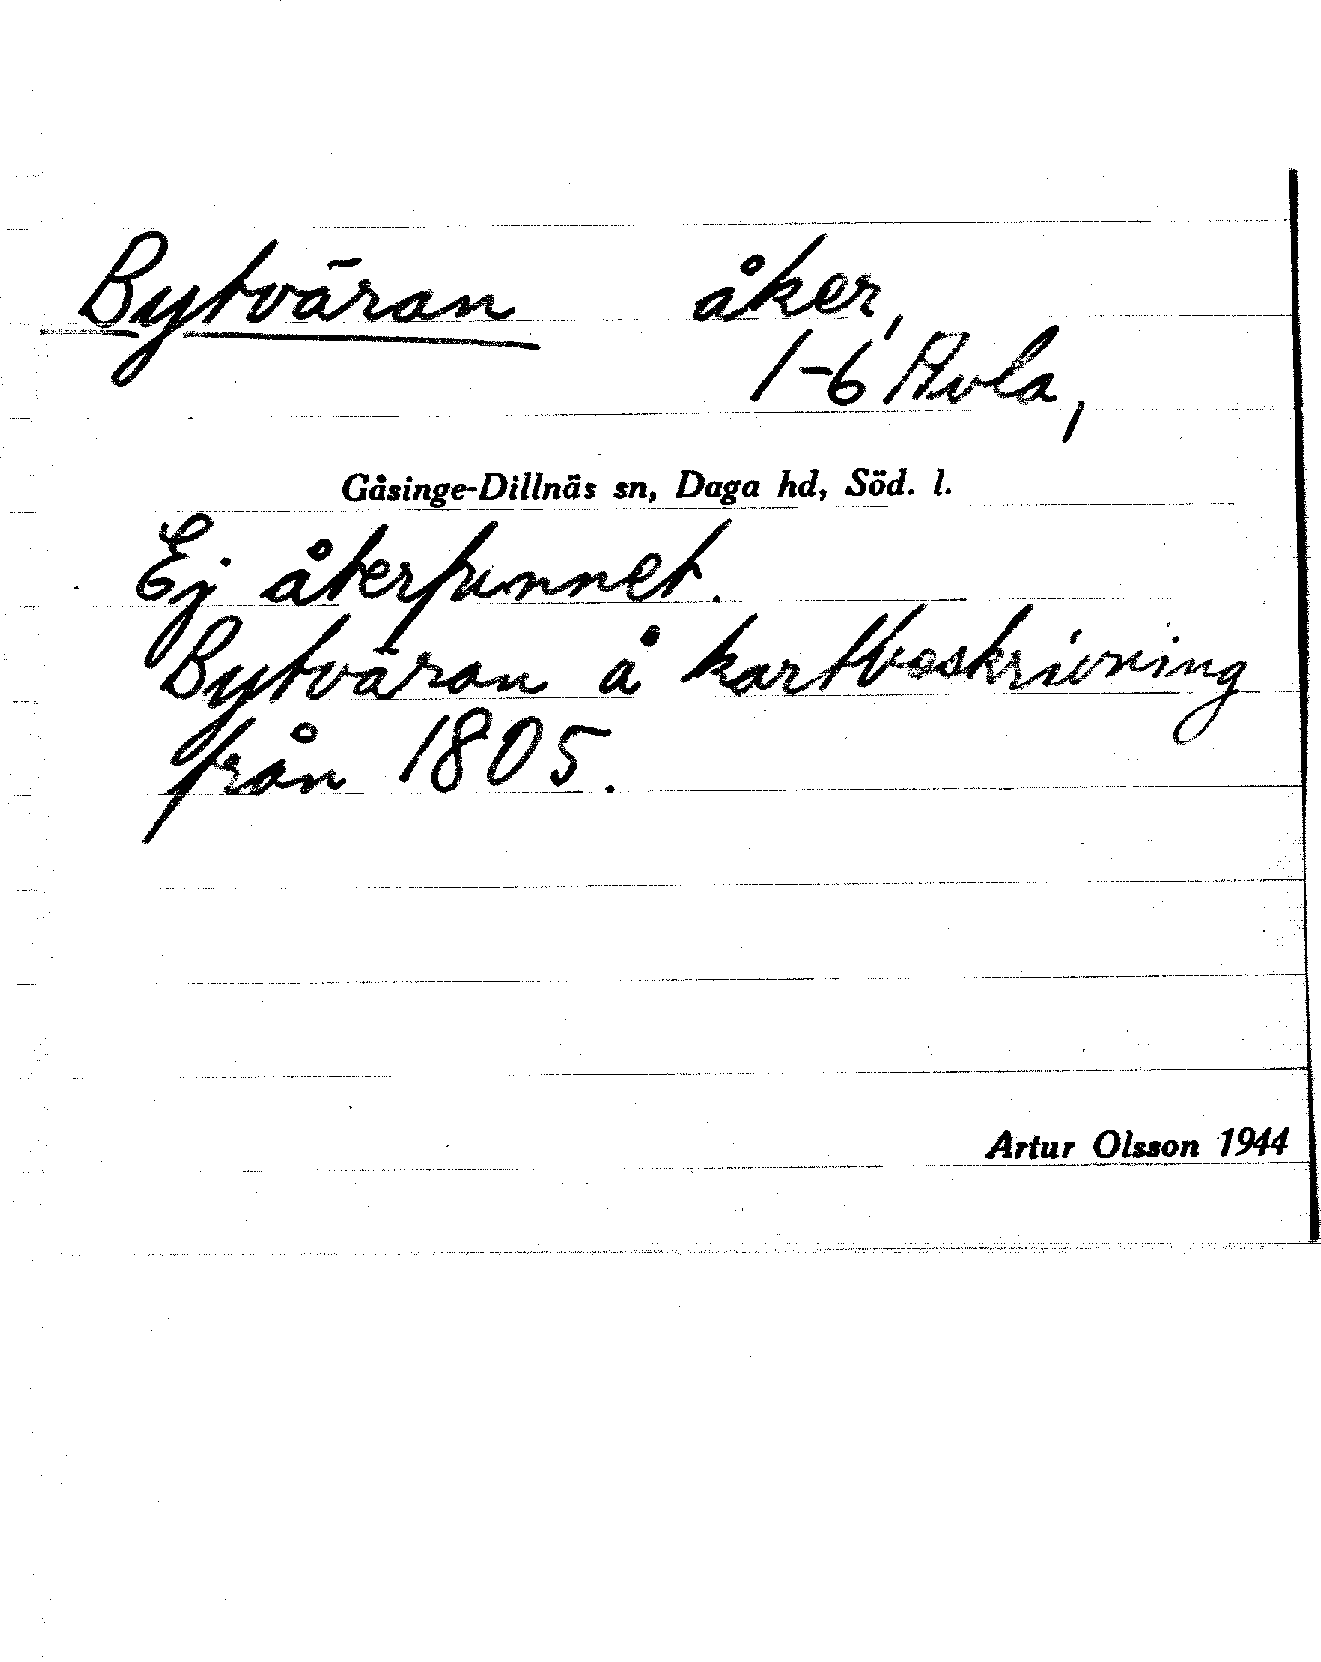 Bytväran åker,
1-6 Avla,
Gåsinge-Dillnäs sn, Daga hd, Söd. l.
Ej återfunnet.
Bytväran å kartbeskrivning
från 1805.
Artur Olsson 1944